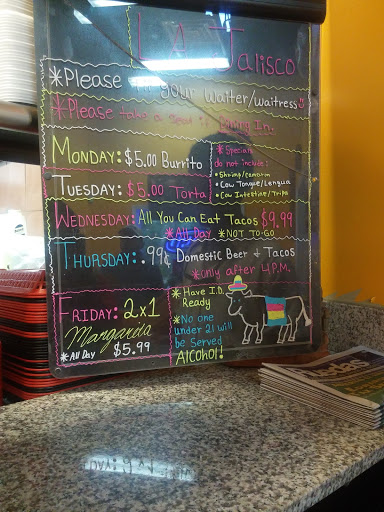 La Jalisco
*Please tip your waiter/waitress
*Please take a seat if Dining In.
MONDAY: $5.00 Burrito
TUESDAY: $5.00 Torta
*Specials
do not include:
•Shrimp/Camaron
•Cow Tongue/Lengua
•Cow Intestine/Tripa
WEDNESDAY: All You Can Eat Tacos $9.99
*All Day *NOT TO-GO
THURSDAY: .99¢ Domestic Beer & Tacos
*only after 4 P.M.
FRIDAY: 2x1
Margarita
*All Day $5.99
*Have I.D.
Ready
*No one
under 21 will
be Served
Alcohol!